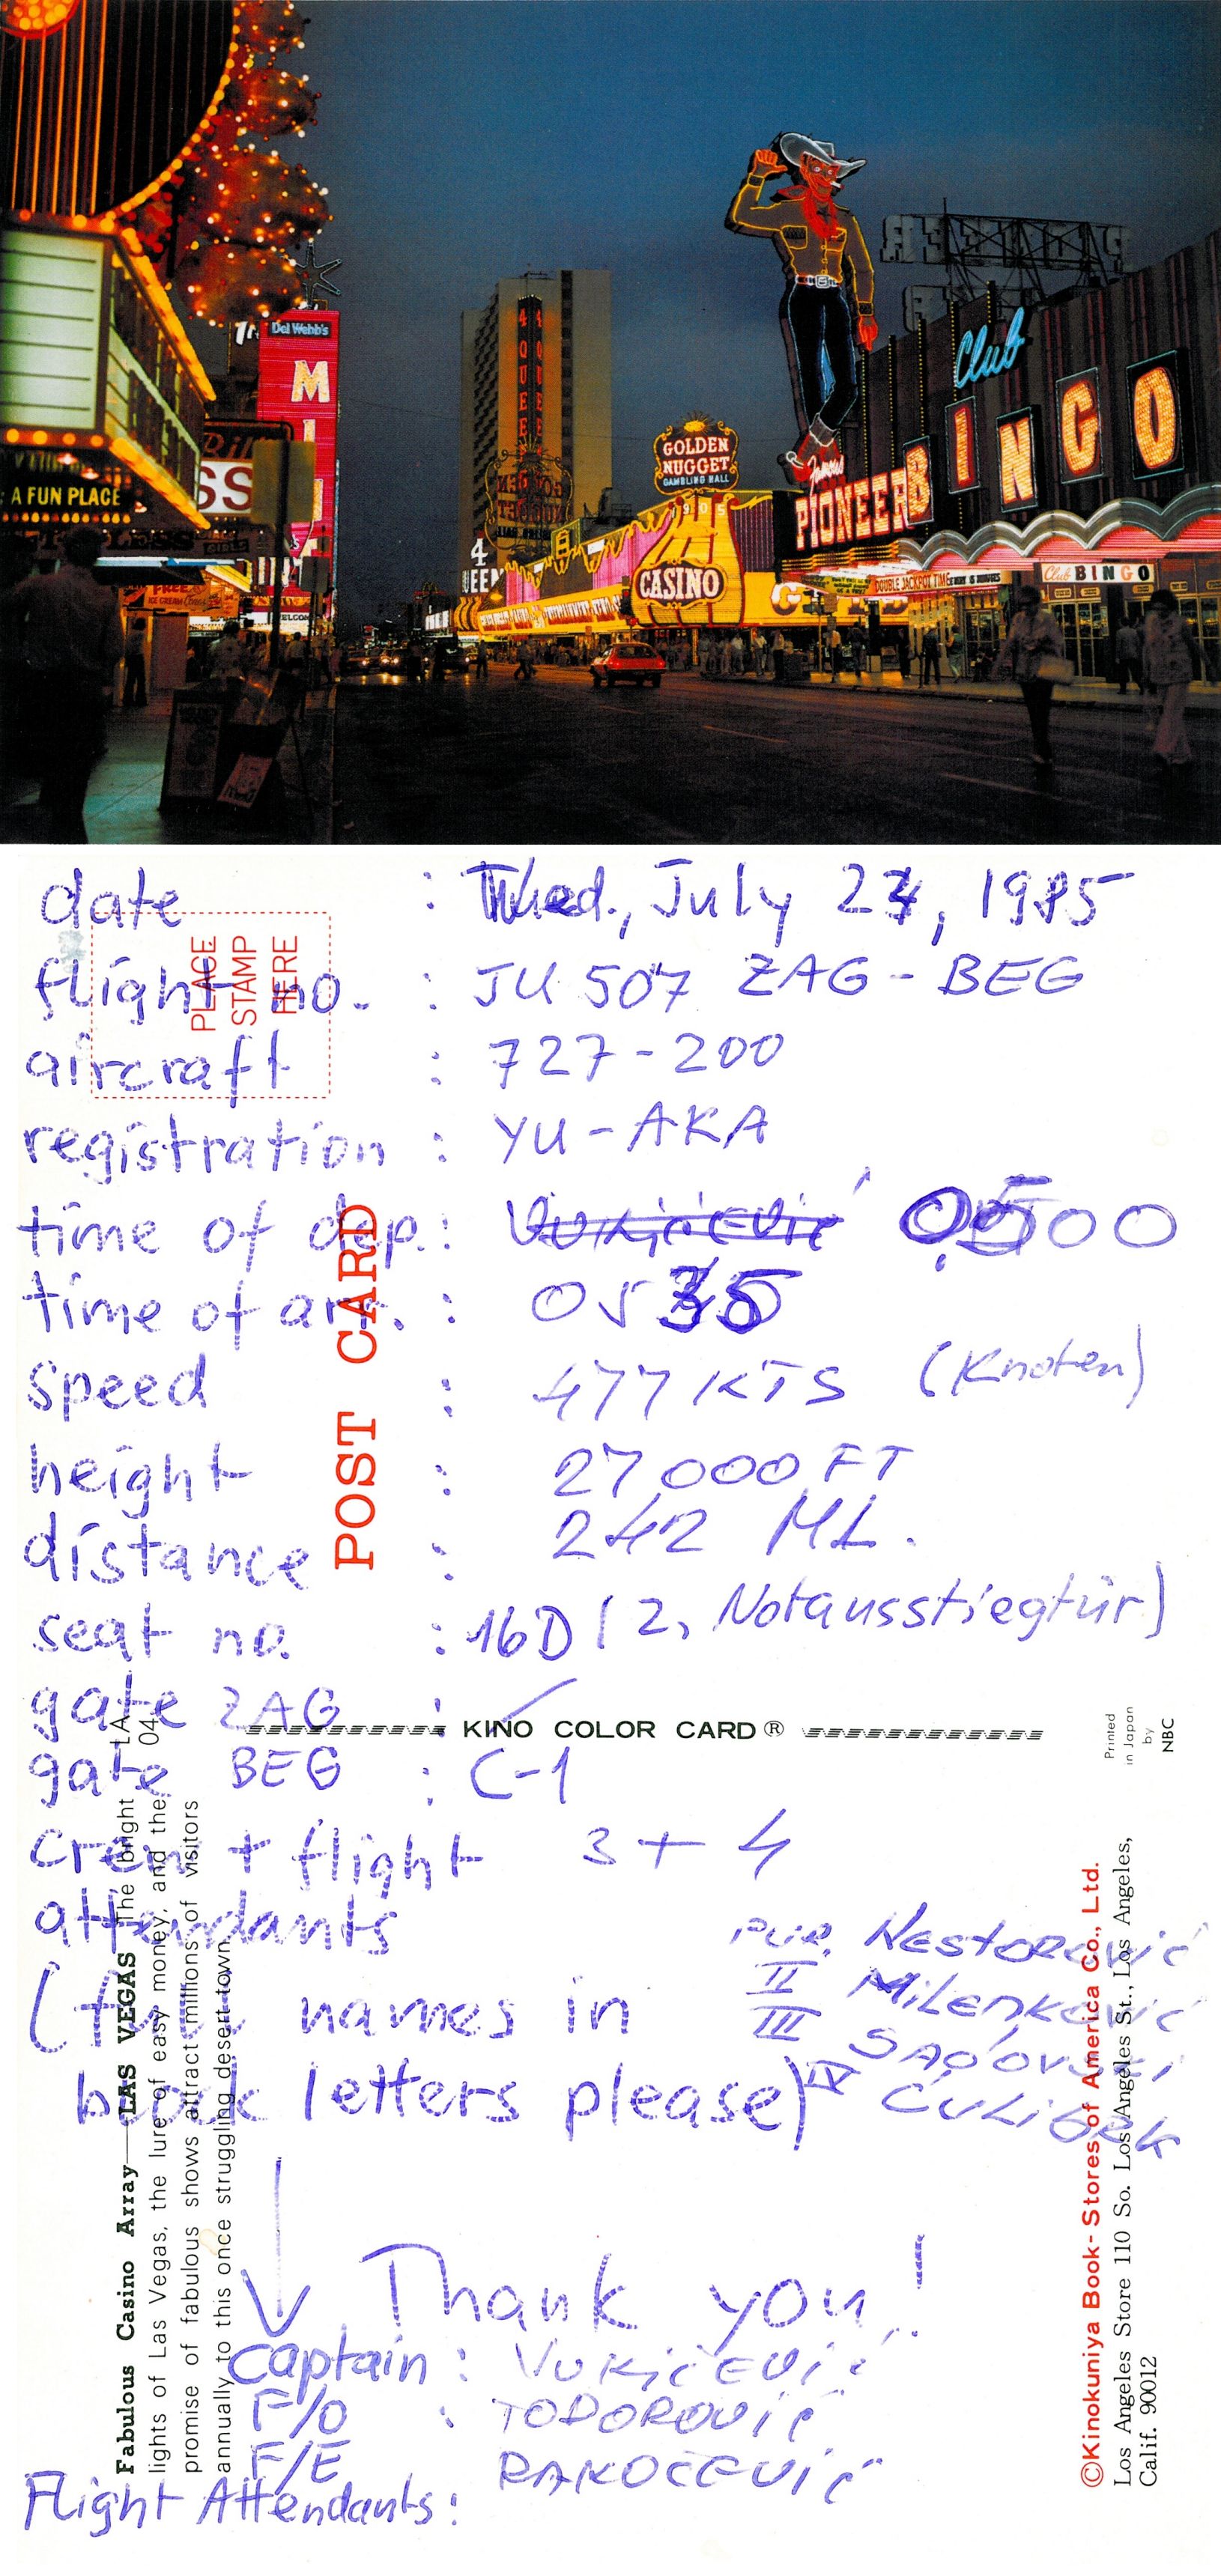 Del Webb's
M
I
A FUN PLACE
SS
4 QUEE
4 QUEE
4
UEEN
GOLDEN
NUGGET
GAMBLING HALL
1905
CASINO
G
Famous
PIONEER
Club
BINGO
DOUBLE JACKPOT TIME
Club BINGO
FREE
date : Wed., July 24, 1985
PLACE
STAMP
HERE
flight no. : JU 507 ZAG - BEG
aircraft : 727-200
registration : YU-AKA
time of dep. : Vukićević 0500
time of arr. : 0535
speed : 477 KTS (Knoten)
height : 27,000 FT
distance : 242 ML.
seat no. : 16D (2, Notausstiegtür)
POST CARD
gate ZAG : /
KINO COLOR CARD®
Printed
in Japan
by
NBC
gate BEG : C-1
crew + flight 3 + 4
attendants
(full names in
block letters please)
PUR. Nestorović
II Milenković
III Sadovski
IV Čulibrk
Thank you!
captain : VUKIĆEVIĆ
F/O : TODOROVIĆ
F/E RAKOČEVIĆ
Flight Attendants:
LA
04
Fabulous Casino Array—LAS VEGAS The bright
lights of Las Vegas, the lure of easy money, and the
promise of fabulous shows attract millions of visitors
annually to this once struggling desert town.
©Kinokuniya Book-Stores of America Co., Ltd.
Los Angeles Store 110 So. Los Angeles St., Los Angeles,
Calif. 90012